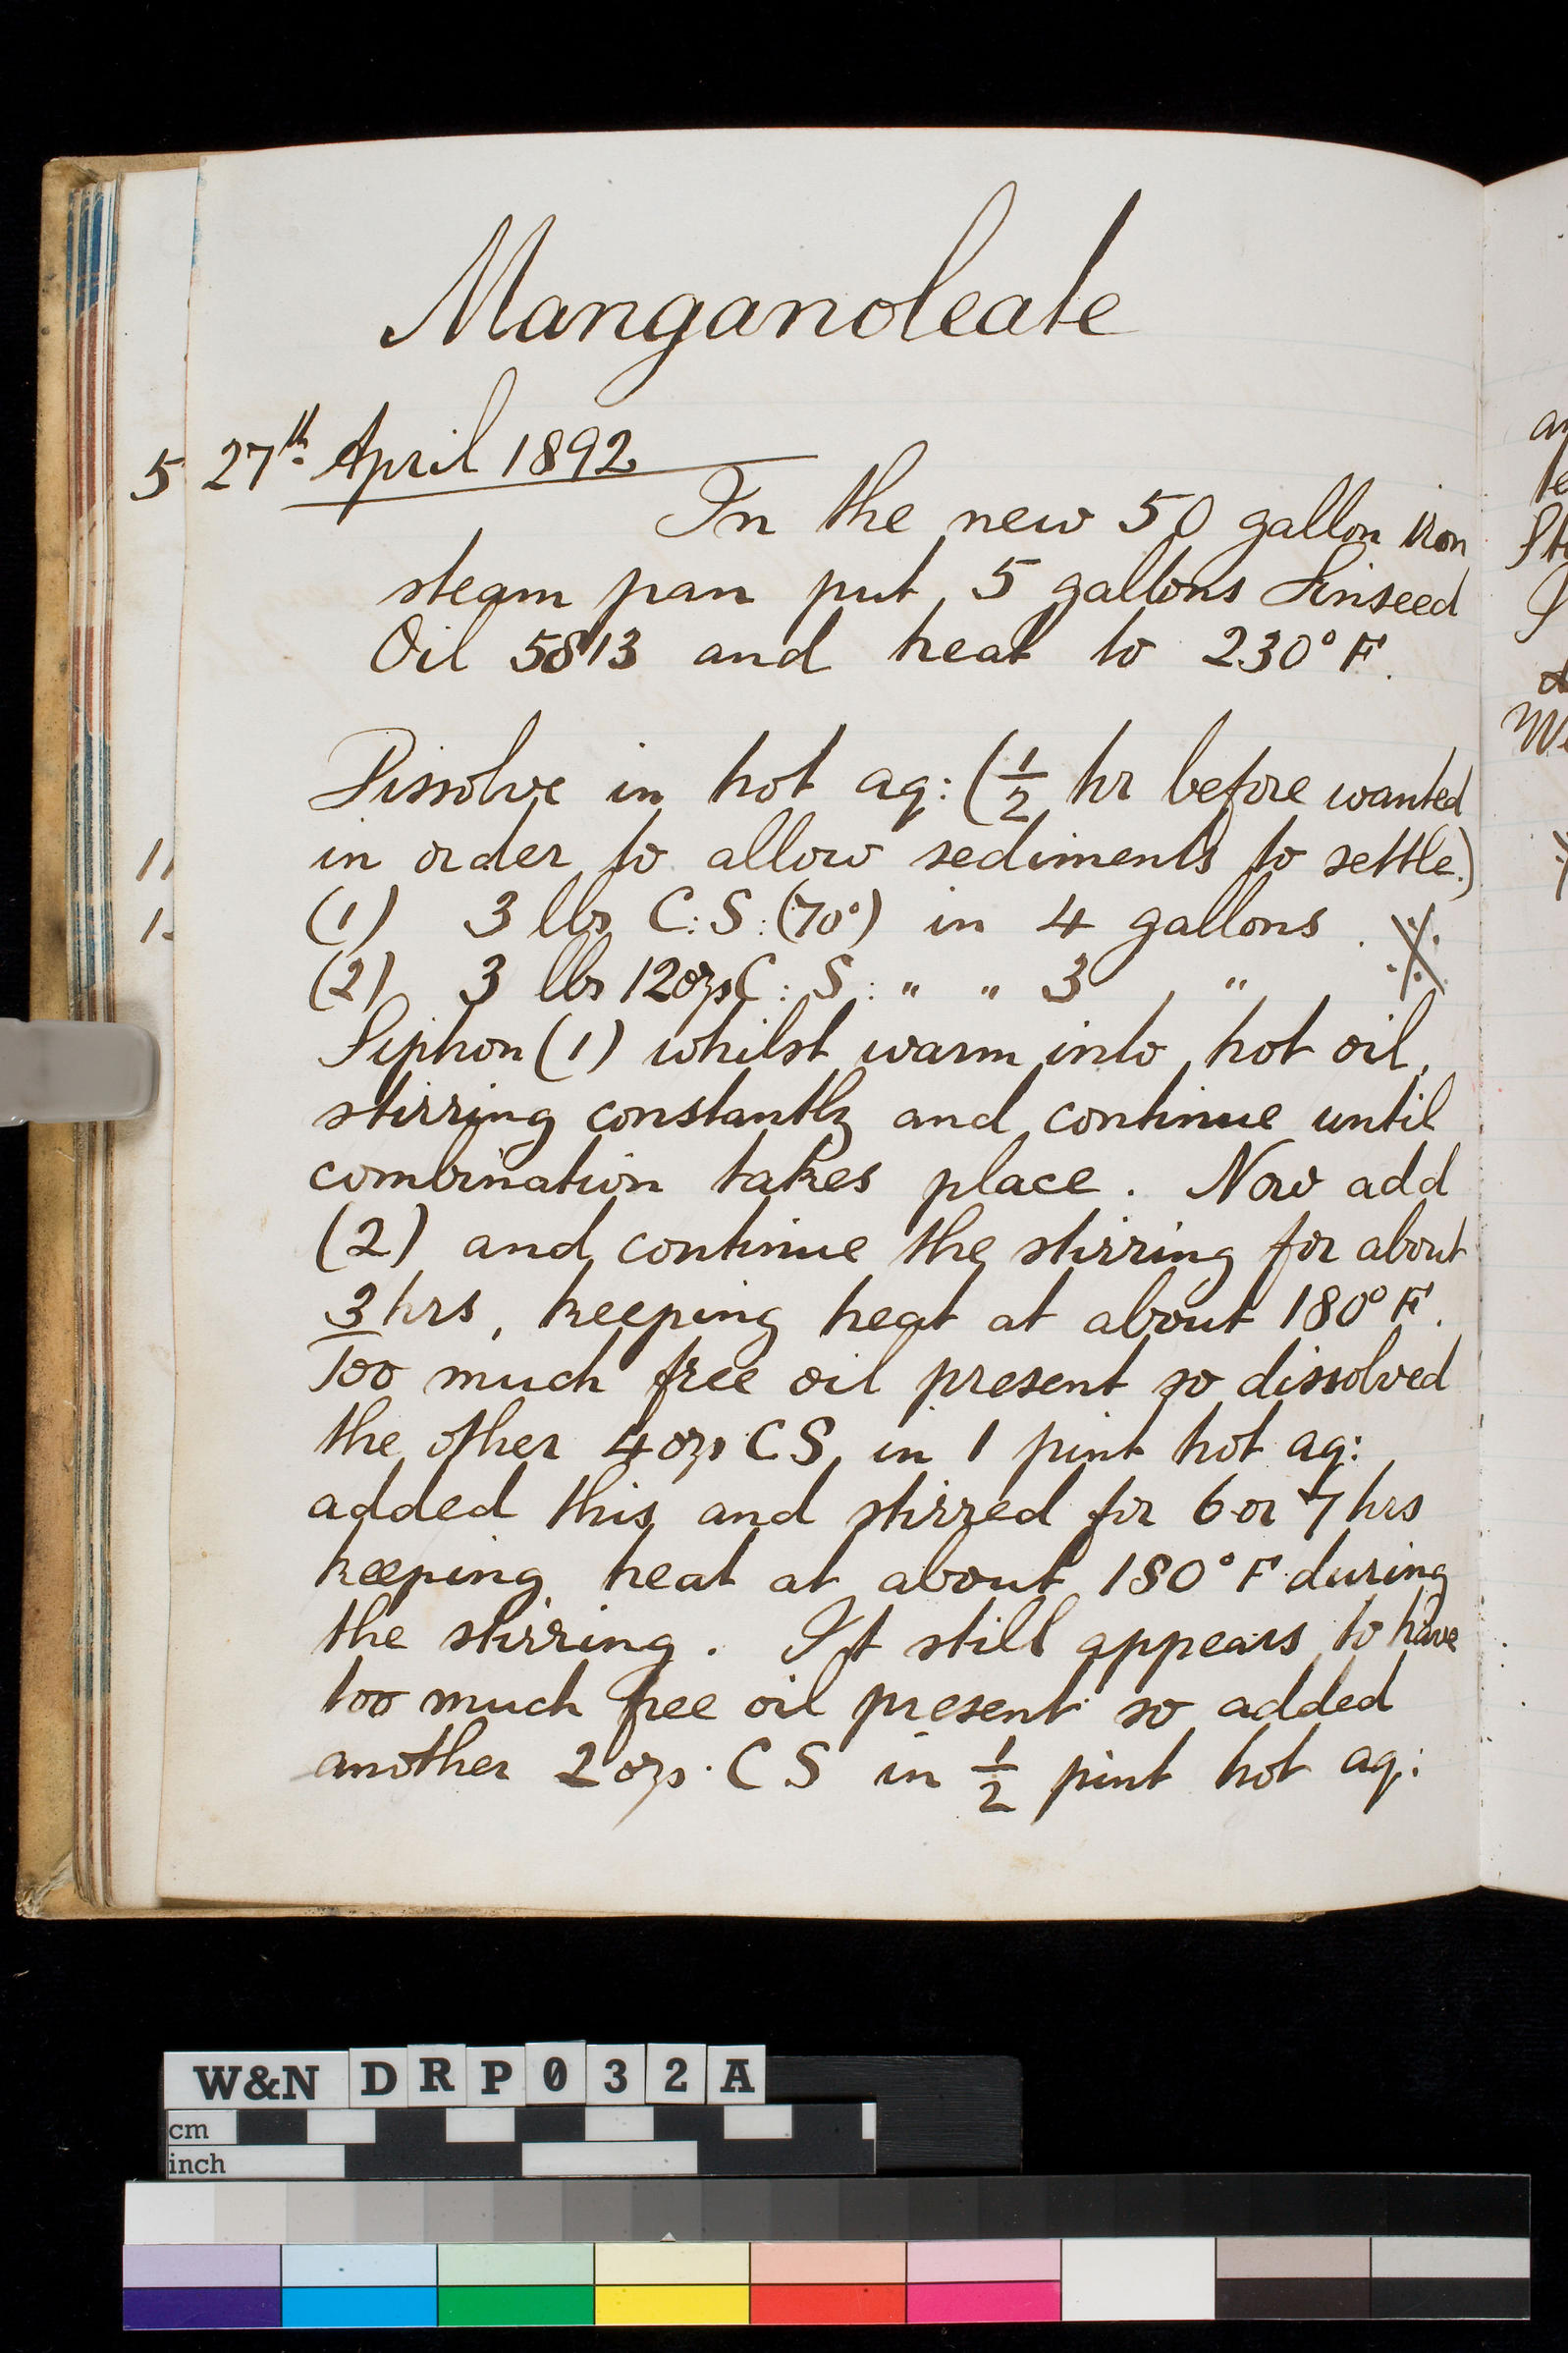 Manganoleate
5 27th April 1892
In the new 50 gallon iron
steam pan put 5 gallons Linseed
Oil 5813 and heat to 230° F.
Dissolve in hot aq: (1/2 hr before wanted
in order to allow sediments to settle.)
(1) 3 lbs C: S: (70°) in 4 gallons.
(2) 3 lbs 12 ozs C: S: " " 3 "
Siphon (1) whilst warm into hot oil,
stirring constantly and continue until
combination takes place. Now add
(2) and continue the stirring for about
3 hrs, keeping heat at about 180° F.
Too much free oil present so dissolved
the other 4 ozs CS in 1 pint hot aq:
added this and stirred for 6 or 7 hrs
keeping heat at about 180° F during
the stirring. It still appears to have
too much free oil present so added
another 2 ozs. CS in 1/2 pint hot aq:
W&N DRP032A
cm
inch